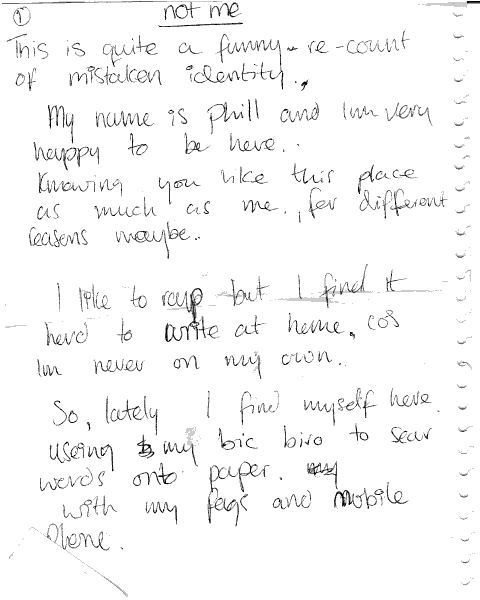 ①
not me
This is quite a funny re-count
of mistaken identity.,
My name is phill and Im very
happy to be here..
Knowing you like this place
as much as me., for different
reasons maybe..
I like to rap but I find it
hard to write at home, cos
Im never on my own.
So, lately I find myself here
useing my bic biro to scar
words onto paper.
with my fags and mobile
Phone.